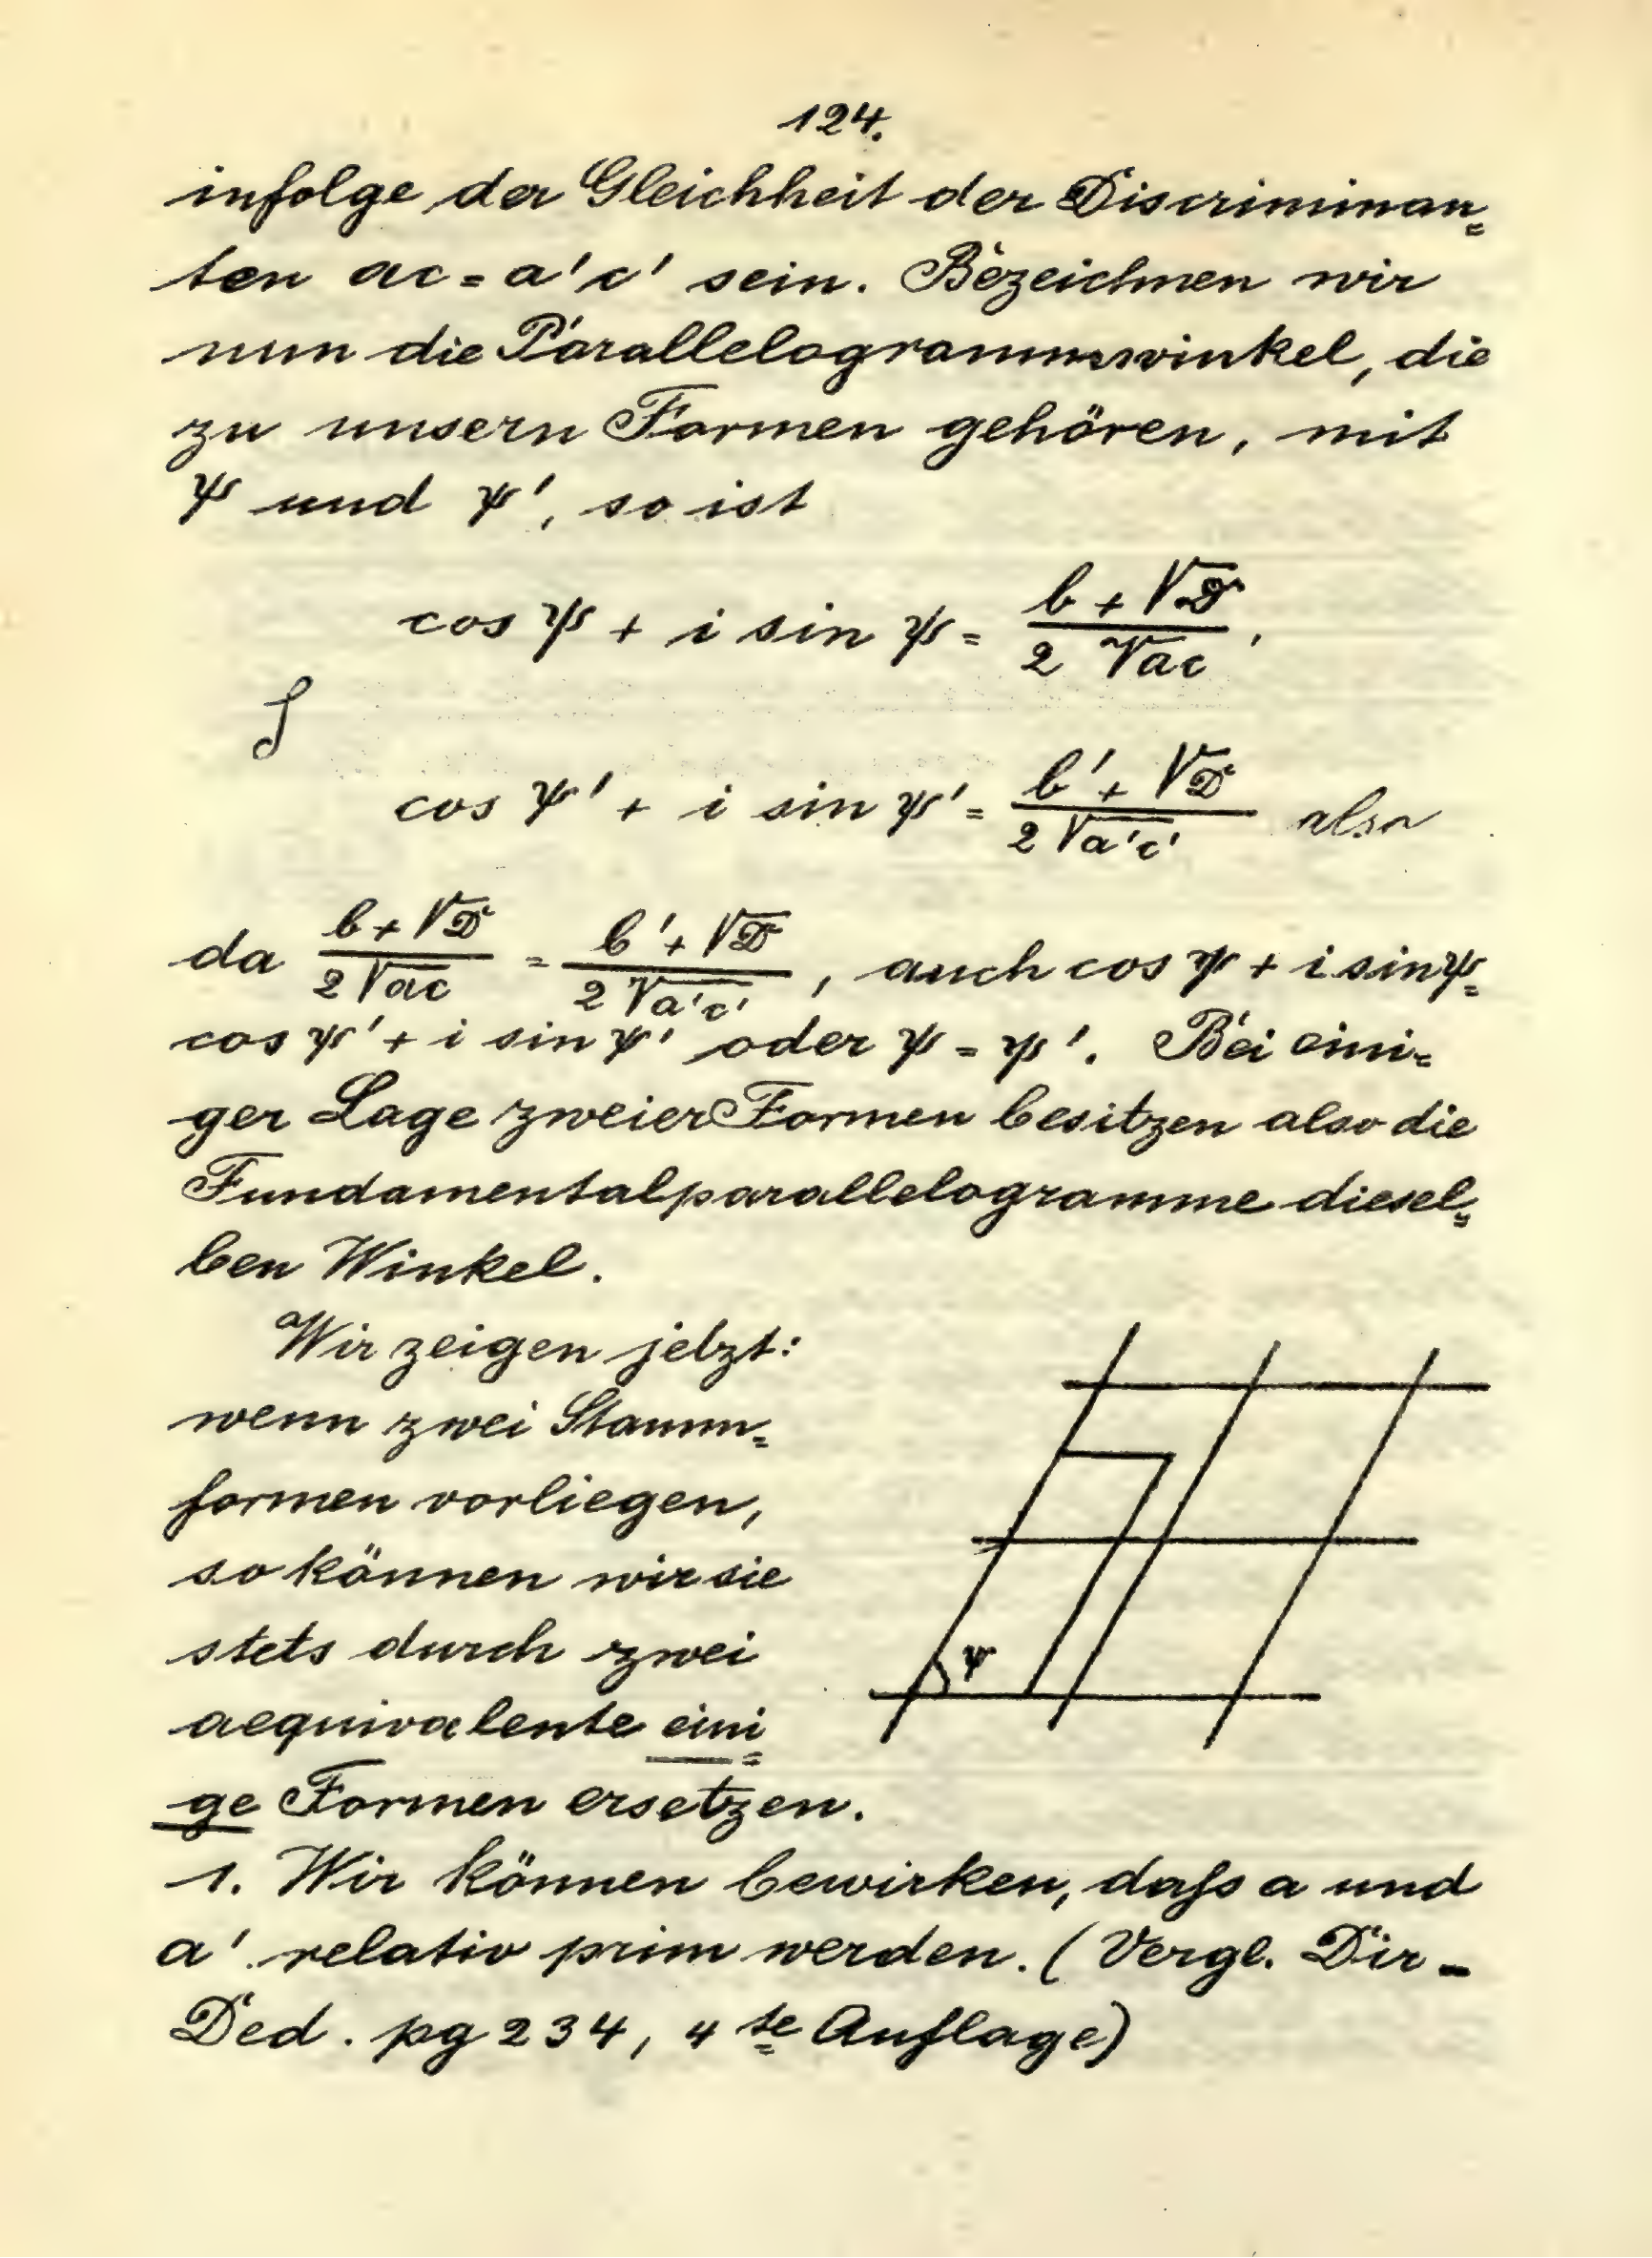 124.
infolge der Gleichheit der Discriminan=
ten ac = a'c' sein. Bezeichnen wir
nun die Parallelogrammwinkel, die
zu unsern Formen gehören, mit
ψ und ψ', so ist
cos ψ + i sin ψ = (b + √D)/(2 √ac),
cos ψ' + i sin ψ' = (b' + √D)/(2 √a'c') also
da (b + √D)/(2 √ac) = (b' + √D)/(2 √a'c'), auch cos ψ + i sin ψ =
cos ψ' + i sin ψ' oder ψ = ψ'. Bei eini=
ger Lage zweier Formen besitzen also die
Fundamentalparallelogramme diesel=
ben Winkel.
Wir zeigen jetzt:
wenn zwei Stamm=
formen vorliegen,
so können wir sie
stets durch zwei
aequivalente eini=
ge Formen ersetzen.
ψ
1. Wir können bewirken, dafs a und
a' relativ prim werden. (Vergl. Dir-
Ded. pg 234, 4te Auflage)